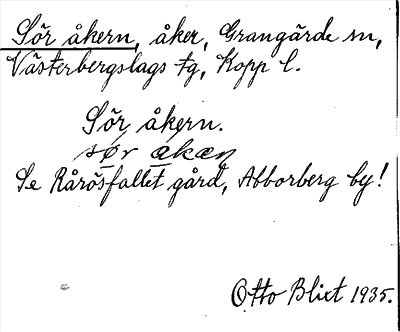 Sör åkern, åker, Grangärde sn,
Västerbergslags tg, Kopp l.
Sör åkern.
Se Rårösfallet gård, Abborberg by!
Otto Blixt 1935.